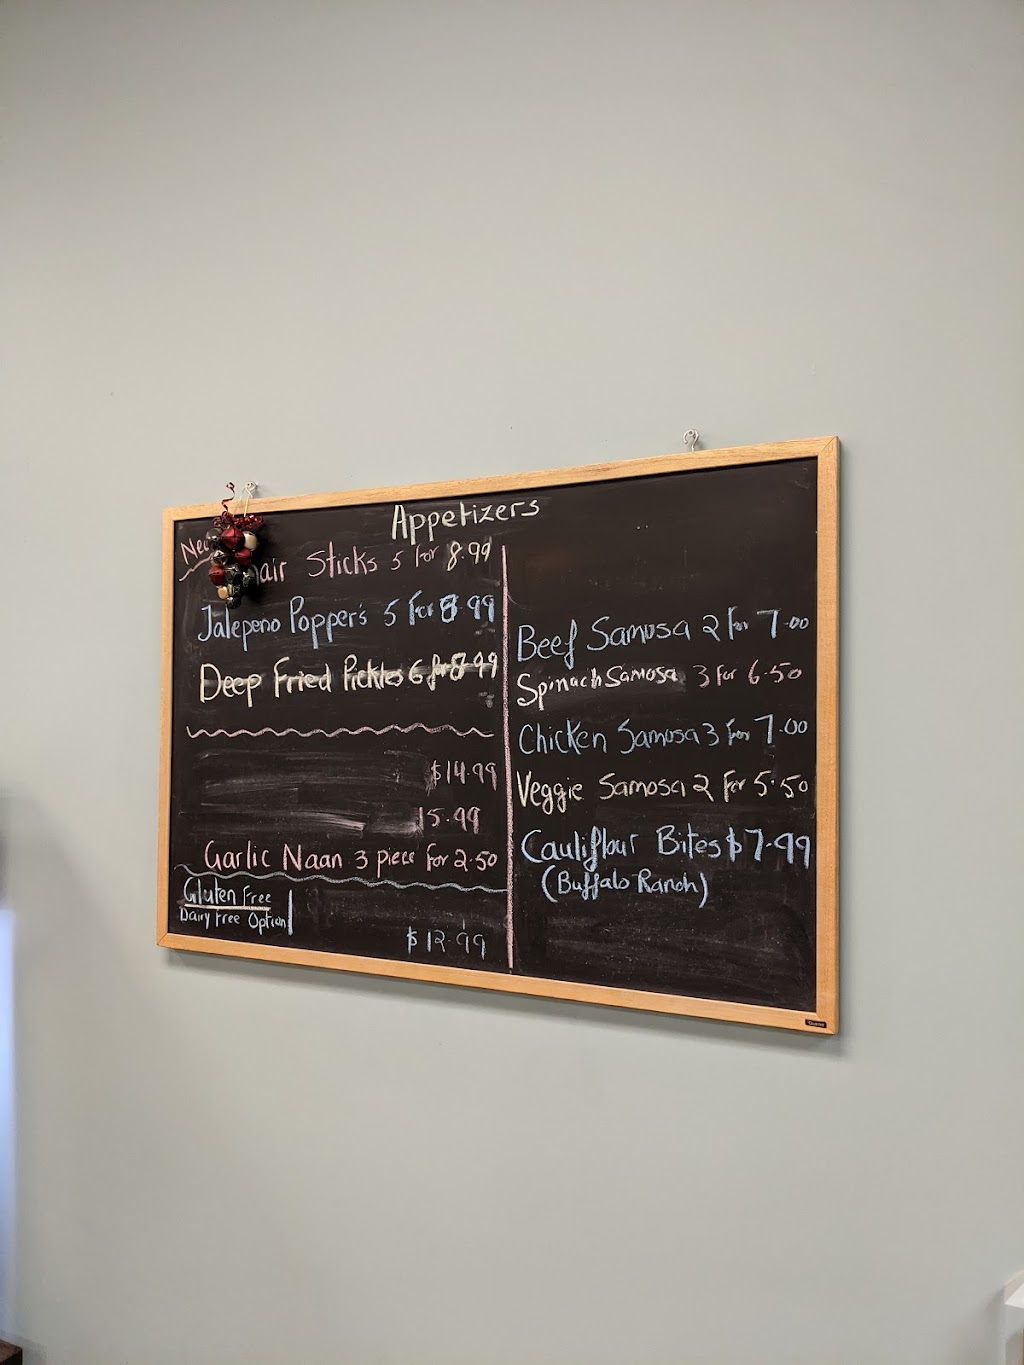 Appetizers
Sticks 5 for 8.99
Jalepeno Popper's 5 for 8.99
Deep Fried Pickles 6 for 8.99
$14.99
15.99
Garlic Naan 3 piece for 2.50
Gluten Free
Dairy Free Option
$12.99
Beef Samosa 2 for 7.00
Spinach Samosa 3 for 6.50
Chicken Samosa 3 for 7.00
Veggie Samosa 2 for 5.50
Cauliflour Bites $7.99
(Buffalo Ranch)